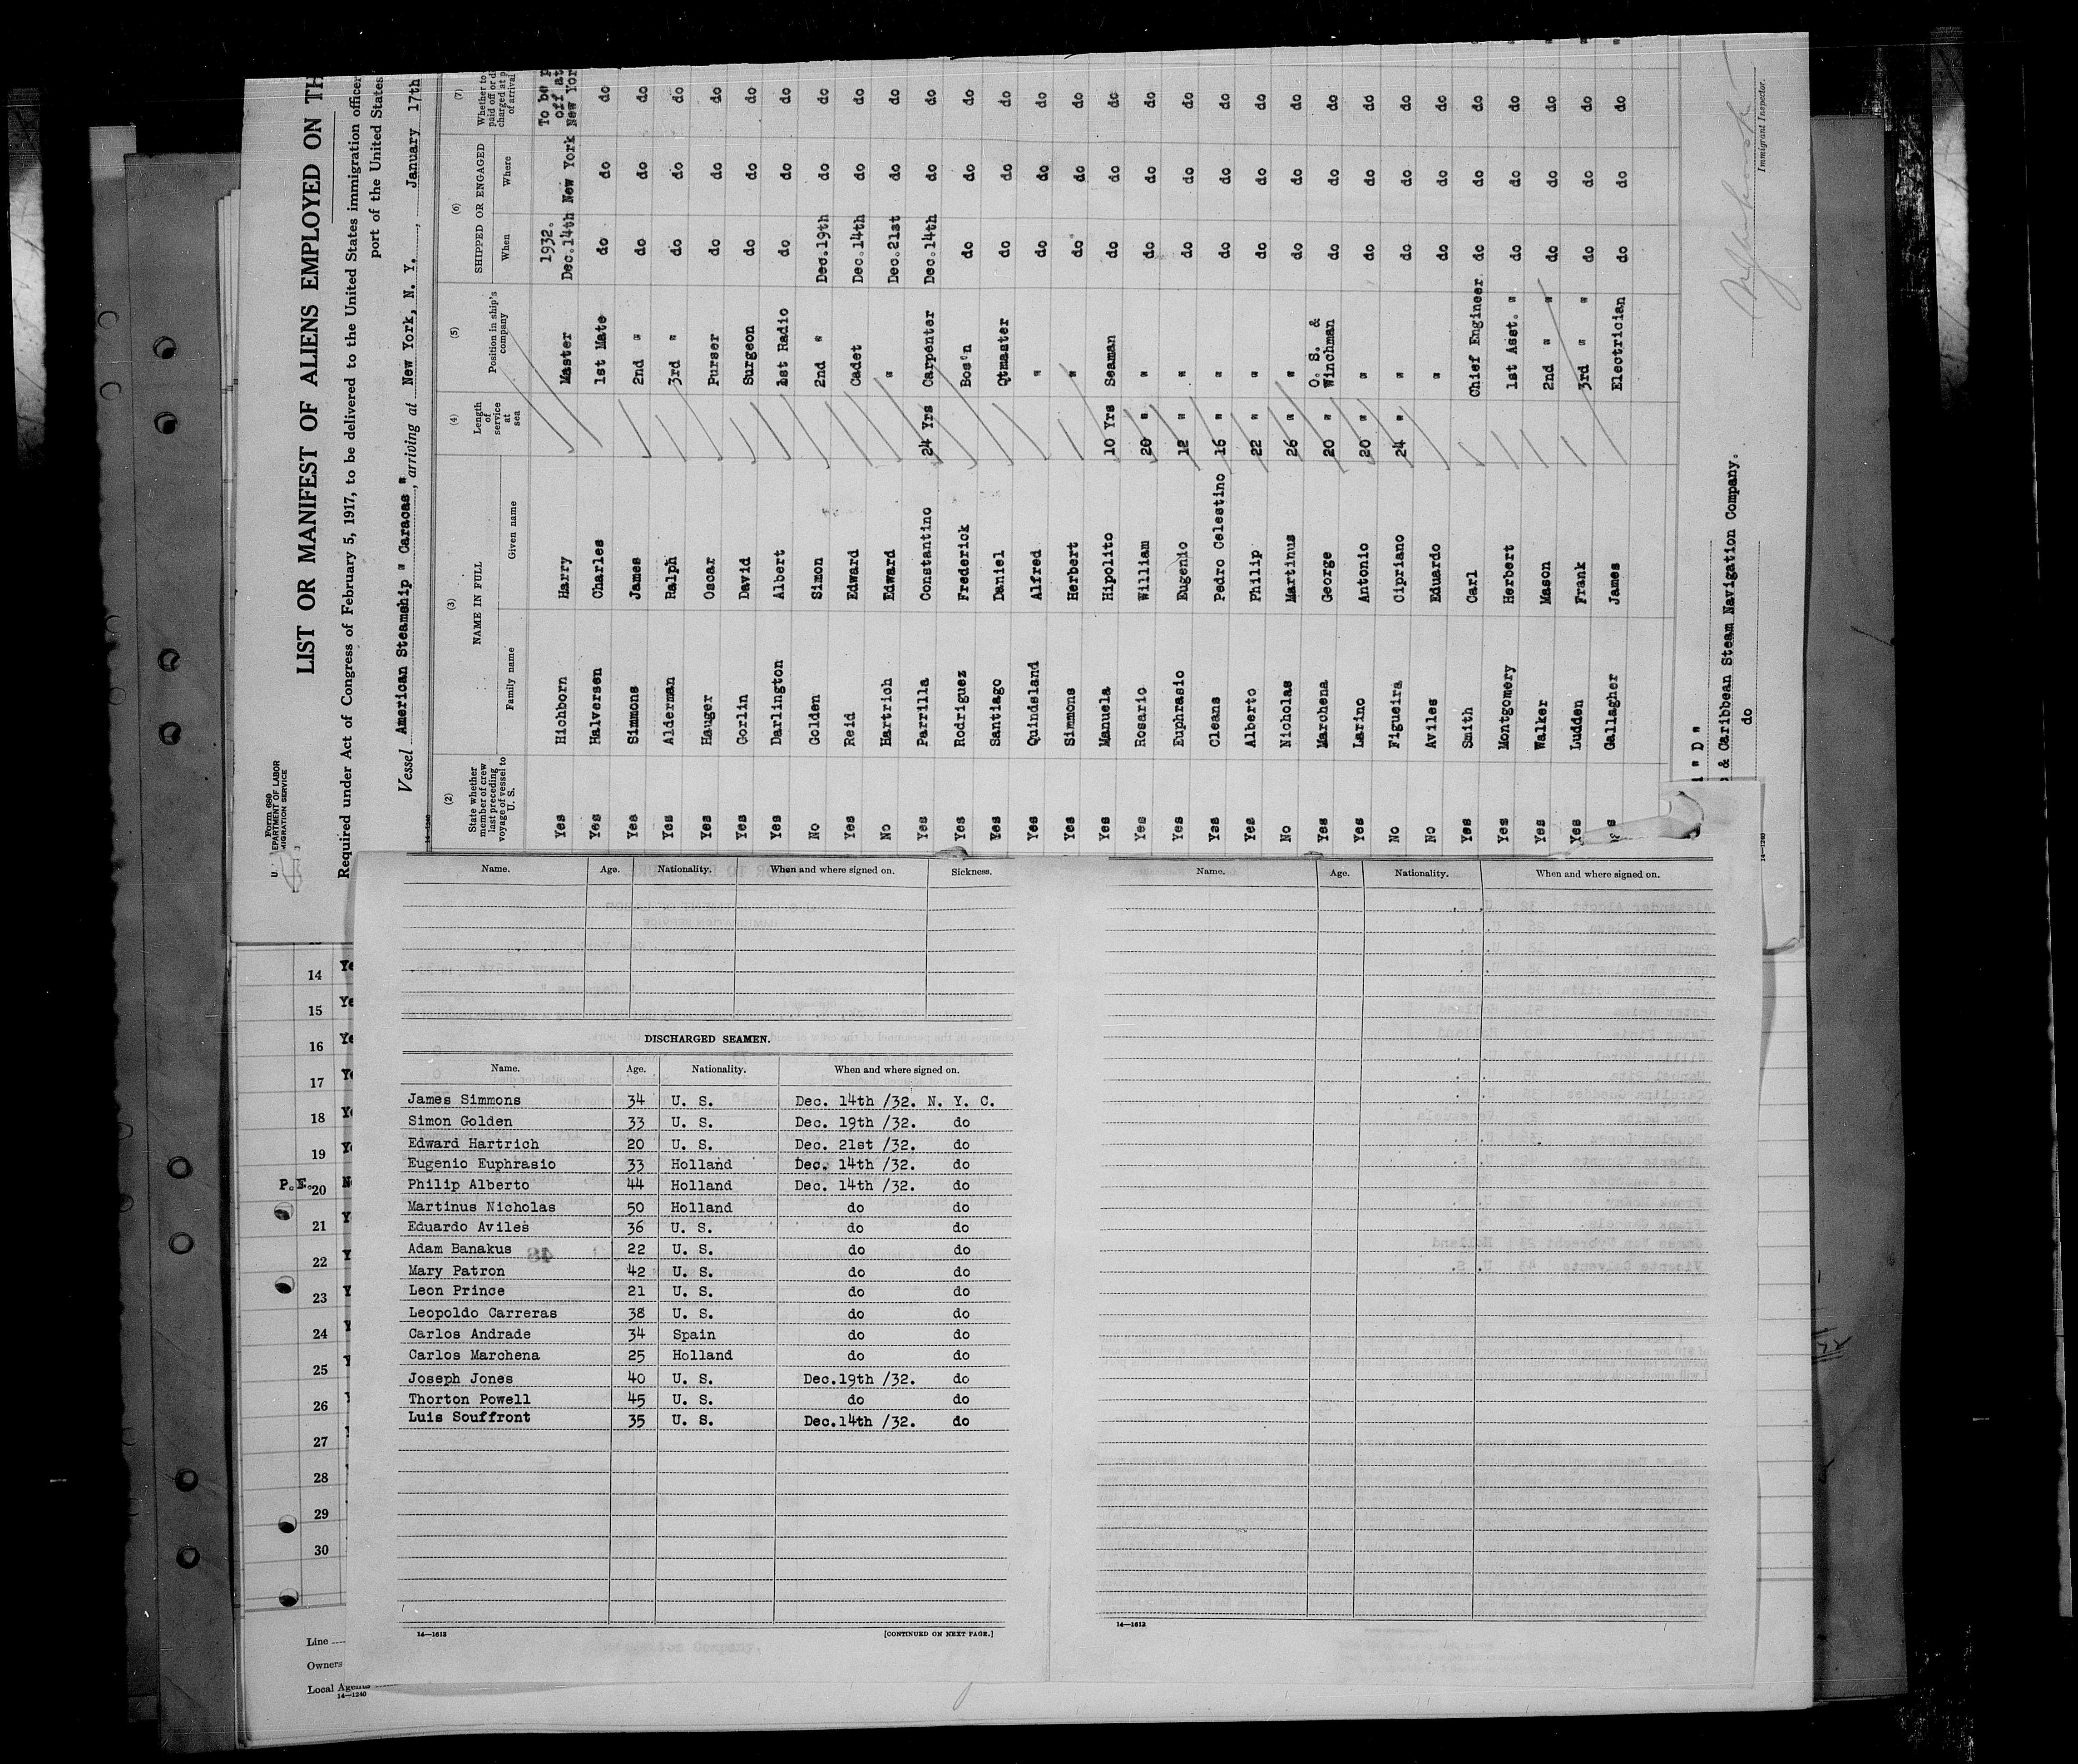 Form 680
U. EPARTMENT OF LABOR
MIGRATION SERVICE
LIST OR MANIFEST OF ALIENS EMPLOYED ON TH
Required under Act of Congress of February 5, 1917, to be delivered to the United States immigration officer
port of the United States
Vessel American Steamship " Caracas ", arriving at New York, N. Y., January 17th
(2) (3) (4) (5) (6) (7)
State whether member of crew last preceding voyage of vessel to U. S. NAME IN FULL Family name Given name Length of service at sea Position in ship's company SHIPPED OR ENGAGED When Where Whether to paid off or di charged at p of arrival
Yes Hichborn Harry Master 1932. Dec.14th New York To be p off at New Yor
Yes Halversen Charles 1st Mate do do do
Yes Simmons James 2nd " do do do
Yes Alderman Ralph 3rd " do do do
Yes Hauger Oscar Purser do do do
Yes Gorlin David Surgeon do do do
Yes Darlington Albert 1st Radio do do do
No Golden Simon 2nd " Dec.19th do do
Yes Reid Edward Cadet Dec.14th do do
No Hartrich Edward " Dec.21st do do
Yes Parrilla Constantino 24 Yrs Carpenter Dec.14th do do
Yes Rodriguez Frederick Bos'n do do do
Yes Santiago Daniel Qtmaster do do do
Yes Quindeland Alfred " do do do
Yes Simmons Herbert " do do do
Yes Manuela Hipolito 10 Yrs Seaman do do do
Yes Rosario William 20 " " do do do
Yes Euphrasio Eugenio 12 " " do do do
Yes Cleans Pedro Celestino 16 " " do do do
Yes Alberto Philip 22 " " do do do
No Nicholas Martinus 26 " " do do do
Yes Marchena George 20 " O. S. & Winchman do do do
Yes Larino Antonio 20 " " do do do
No Figueira Cipriano 24 " " do do do
No Aviles Eduardo " do do do
Yes Smith Carl Chief Engineer do do do
Yes Montgomery Herbert 1st Asst. " do do do
Yes Walker Mason 2nd " " do do do
Yes Ludden Frank 3rd " " do do do
Gallagher James Electrician do do do
" D "
& Caribbean Steam Navigation Company.
do
Immigrant Inspector.
14—1240
Name. Age. Nationality. When and where signed on. Sickness.
DISCHARGED SEAMEN.
Name. Age. Nationality. When and where signed on.
James Simmons 34 U. S. Dec. 14th /32. N. Y. C.
Simon Golden 33 U. S. Dec. 19th /32. do
Edward Hartrich 20 U. S. Dec. 21st /32. do
Eugenio Euphrasio 33 Holland Dec. 14th /32. do
Philip Alberto 44 Holland Dec. 14th /32. do
Martinus Nicholas 50 Holland do do
Eduardo Aviles 36 U. S. do do
Adam Banakus 22 U. S. do do
Mary Patron 42 U. S. do do
Leon Prince 21 U. S. do do
Leopoldo Carreras 38 U. S. do do
Carlos Andrade 34 Spain do do
Carlos Marchena 25 Holland do do
Joseph Jones 40 U. S. Dec.19th /32. do
Thorton Powell 45 U. S. do do
Luis Souffront 35 U. S. Dec.14th /32. do
14—1613 [CONTINUED ON NEXT PAGE.]
Name. Age. Nationality. When and where signed on.
14—1613
14 Ye
15 Ye
16 Ye
17 Ye
18 Ye
19 Ye
P.E. 20 N
21 Y
22 Y
23 Y
24 Y
25
26
27
28
29
30
Line
Owners
Local Agents
14—1240